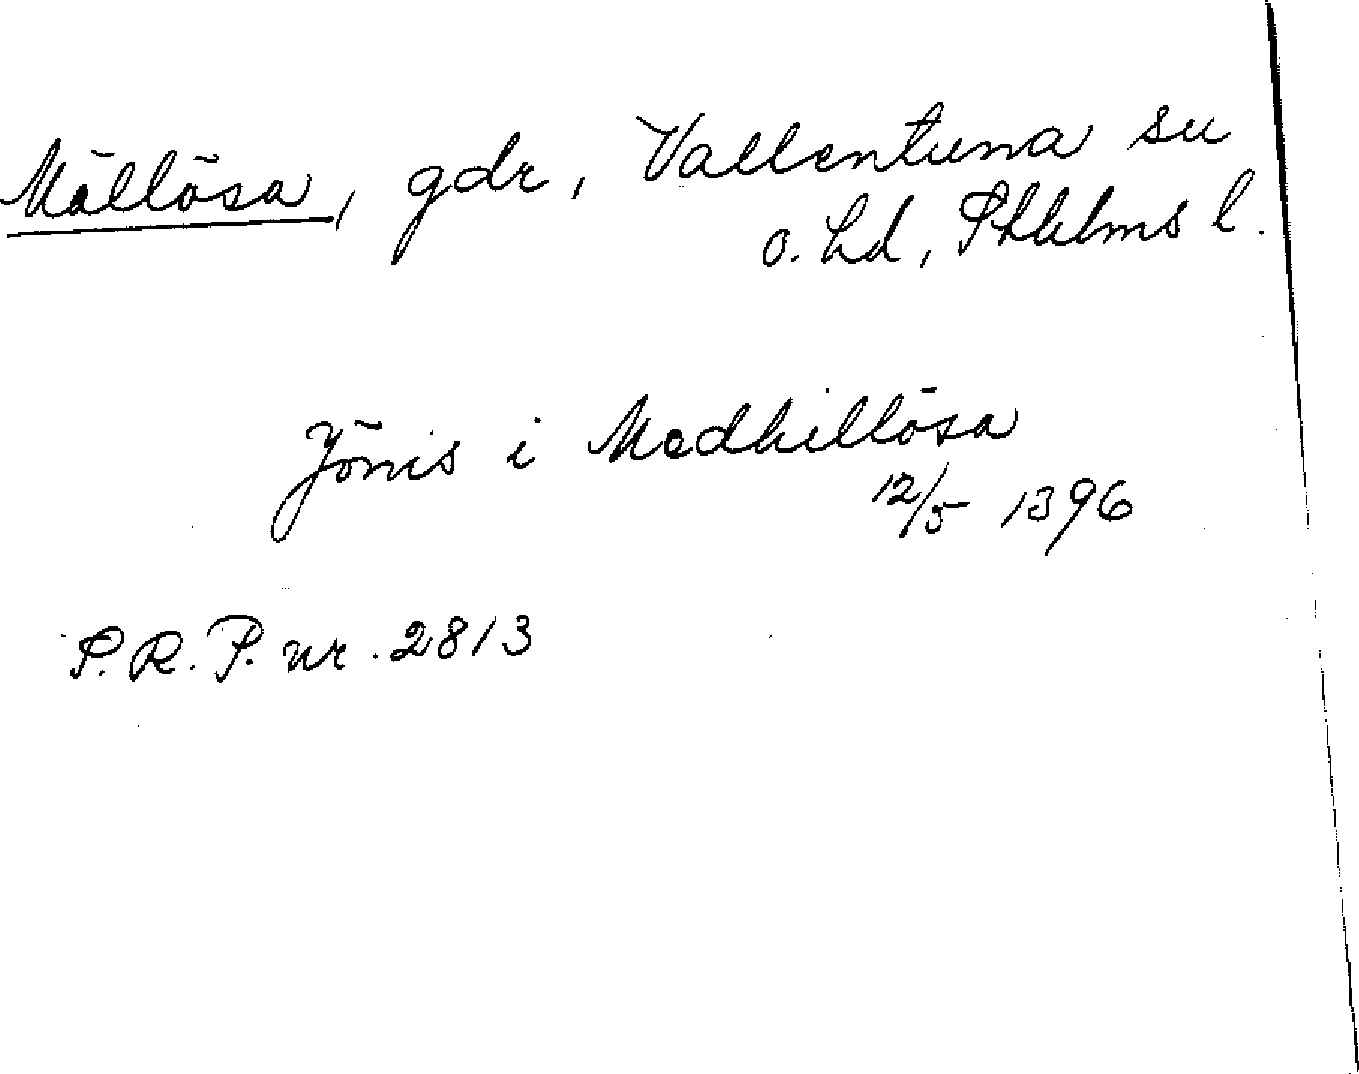 Mällösa, gdr, Vallentuna sn
o. hd, Sthlms l.
Jönis i Medhillösa
12/5 1396
S.R.P. nr. 2813